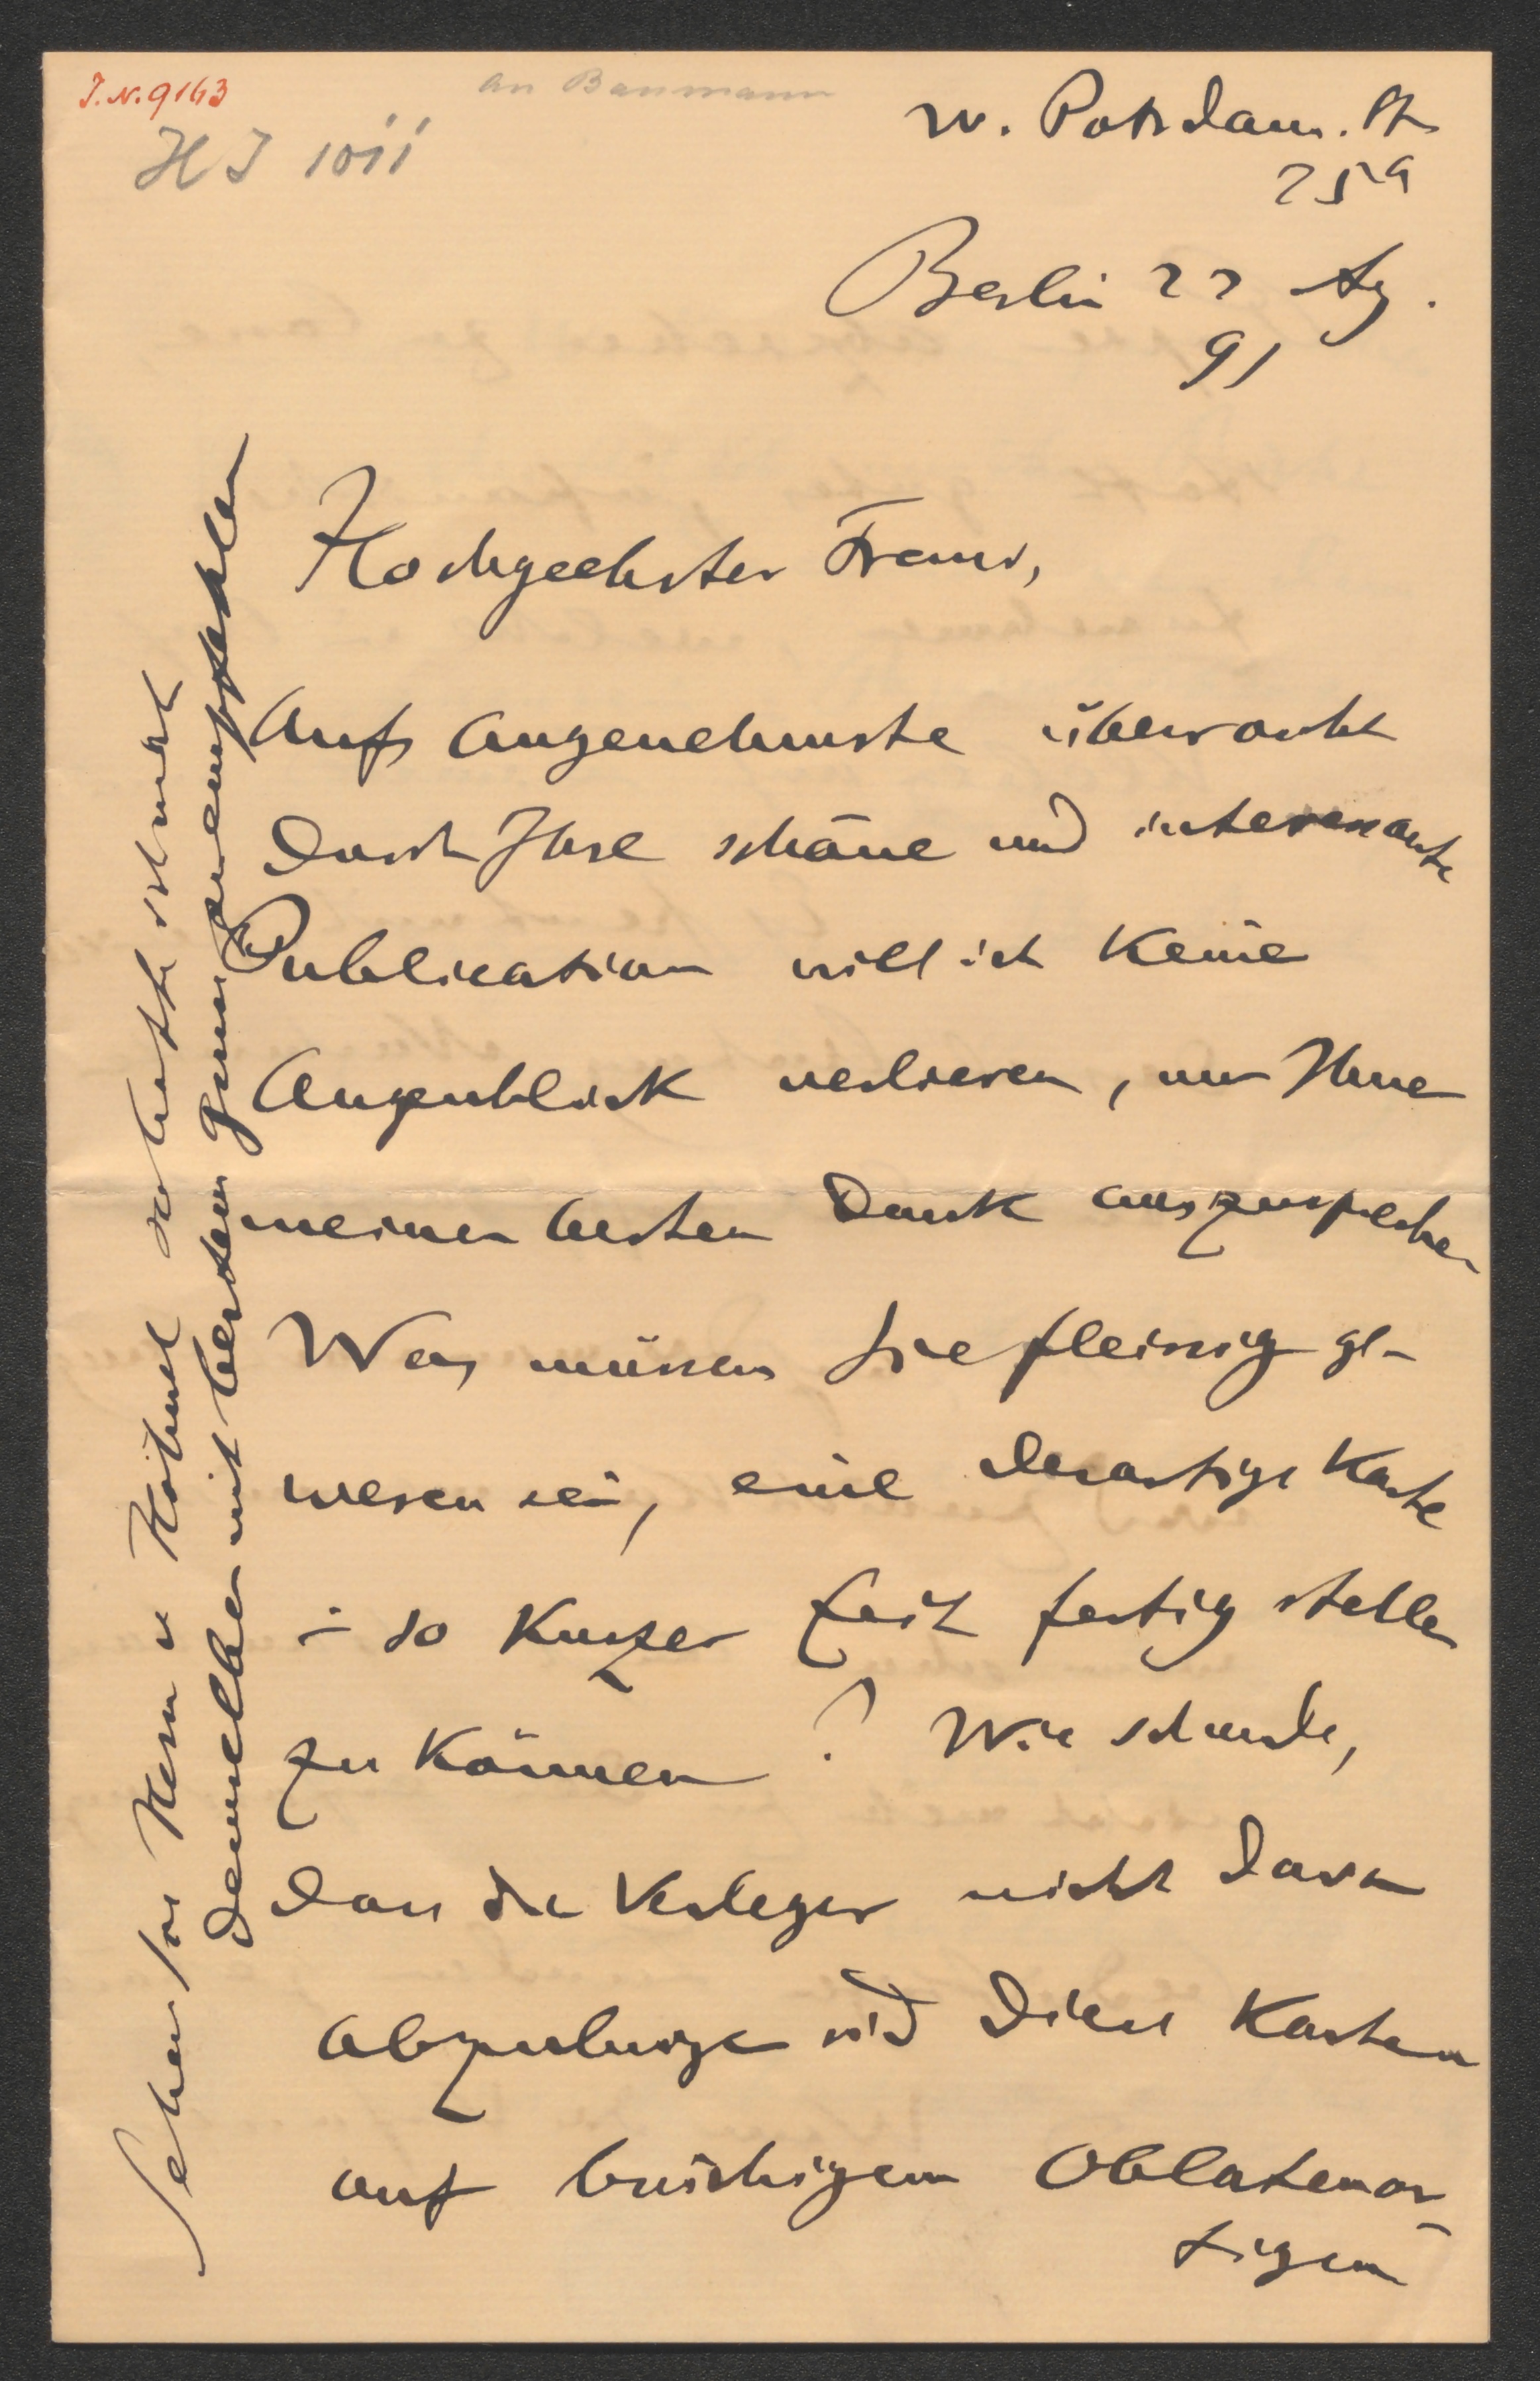 J.N. 9163
an Baumann
HJ 1011
W. Potsdam. St
75a
Berlin 22 Ag.
91
Hochgeehrter Freund,
Aufs Angenehmste überrascht
durch Ihre schöne und interessante
Publication will ich keine
Augenblick verlieren, um Ihne
meinen besten Dank auszusprechen
Was müssen Sie fleissig ge-
wesen sein, eine derartige Karte
in so kurzer Zeit fertig stellen
zu können? Wie schade,
dass die Verleger nicht davon
abzubringen sind diese Karten
auf brüchigem Oblatenar-
tigem
Sehen Sie Herrn v Höhnel so bitte ich mich
demselben mit besten Grüssen zu empfehlen